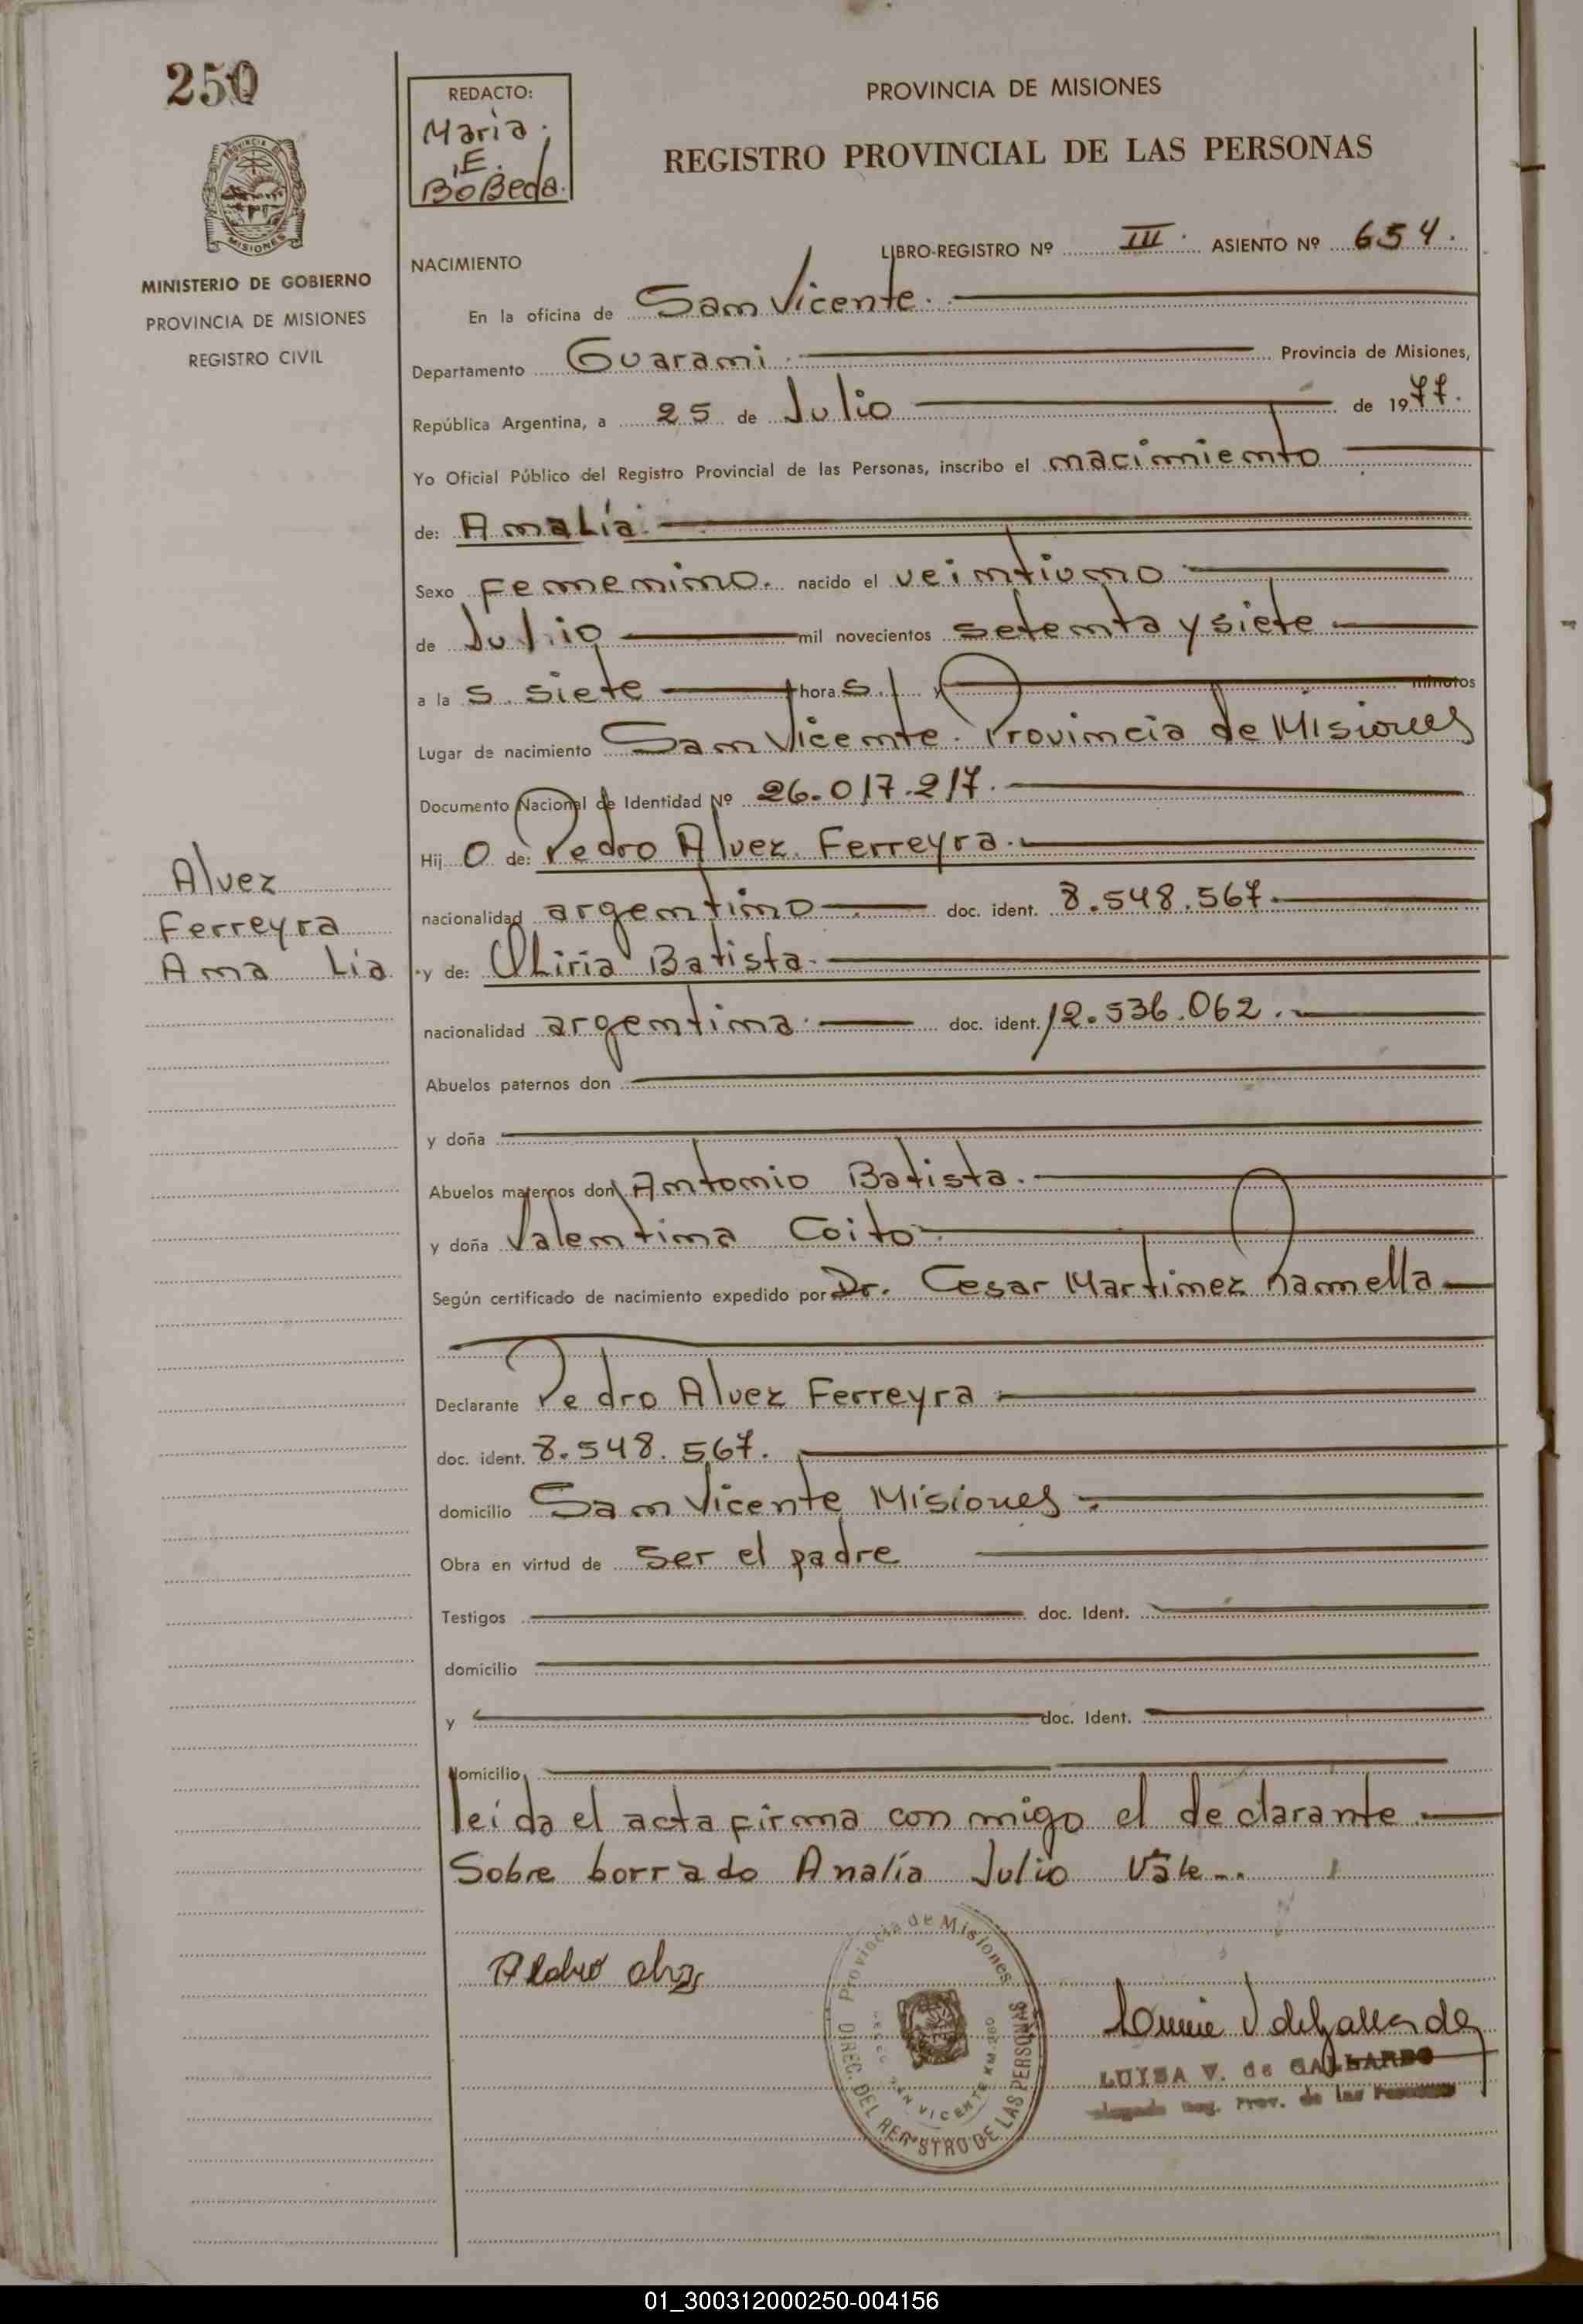 250
REDACTO:
Maria.
E.
BoBeda.
PROVINCIA DE MISIONES
REGISTRO PROVINCIAL DE LAS PERSONAS
MINISTERIO DE GOBIERNO
PROVINCIA DE MISIONES
REGISTRO CIVIL
LIBRO-REGISTRO Nº III. ASIENTO Nº 654.
NACIMIENTO
En la oficina de San Vicente.
Departamento Guarani. Provincia de Misiones,
República Argentina, a 25 de Julio de 1977.
Yo Oficial Público del Registro Provincial de las Personas, inscribo el nacimiento
de: Analía.
Sexo Femenino. nacido el veintiuno
de Julio mil novecientos setenta y siete
a la s siete hora s. y minutos
Lugar de nacimiento San Vicente. Provincia de Misiones
Documento Nacional de Identidad Nº 26.017.217.
Hij o de: Pedro Alvez Ferreyra.
nacionalidad argentino doc. ident. 8.548.567.
Alvez
Ferreyra
Ana Lia
y de: Oliria Batista.
nacionalidad argentina. doc. ident. 12.536.062.
Abuelos paternos don
y doña
Abuelos maternos don Antonio Batista.
y doña Valentina Coito
Según certificado de nacimiento expedido por Dr. Cesar Martinez
Declarante Pedro Alvez Ferreyra
doc. ident. 8.548.567.
domicilio San Vicente Misiones
Obra en virtud de ser el padre
Testigos doc. Ident.
domicilio
y doc. Ident.
domicilio
leida el acta firma con migo el declarante.
Sobre borrado Analía Julio Vale..
Provincia de Misiones
DIREC. DEL REGISTRO DE LAS PERSONAS
SAN VICENTE KM. 260
LUISA V. de GALLARDO
Reg. Prov. de las Personas
01_300312000250-004156